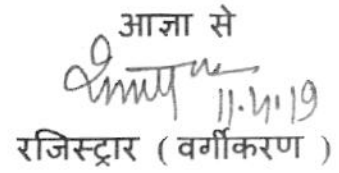 आज्ञा से
11.4.19
रजिस्ट्रार ( वर्गीकरण )